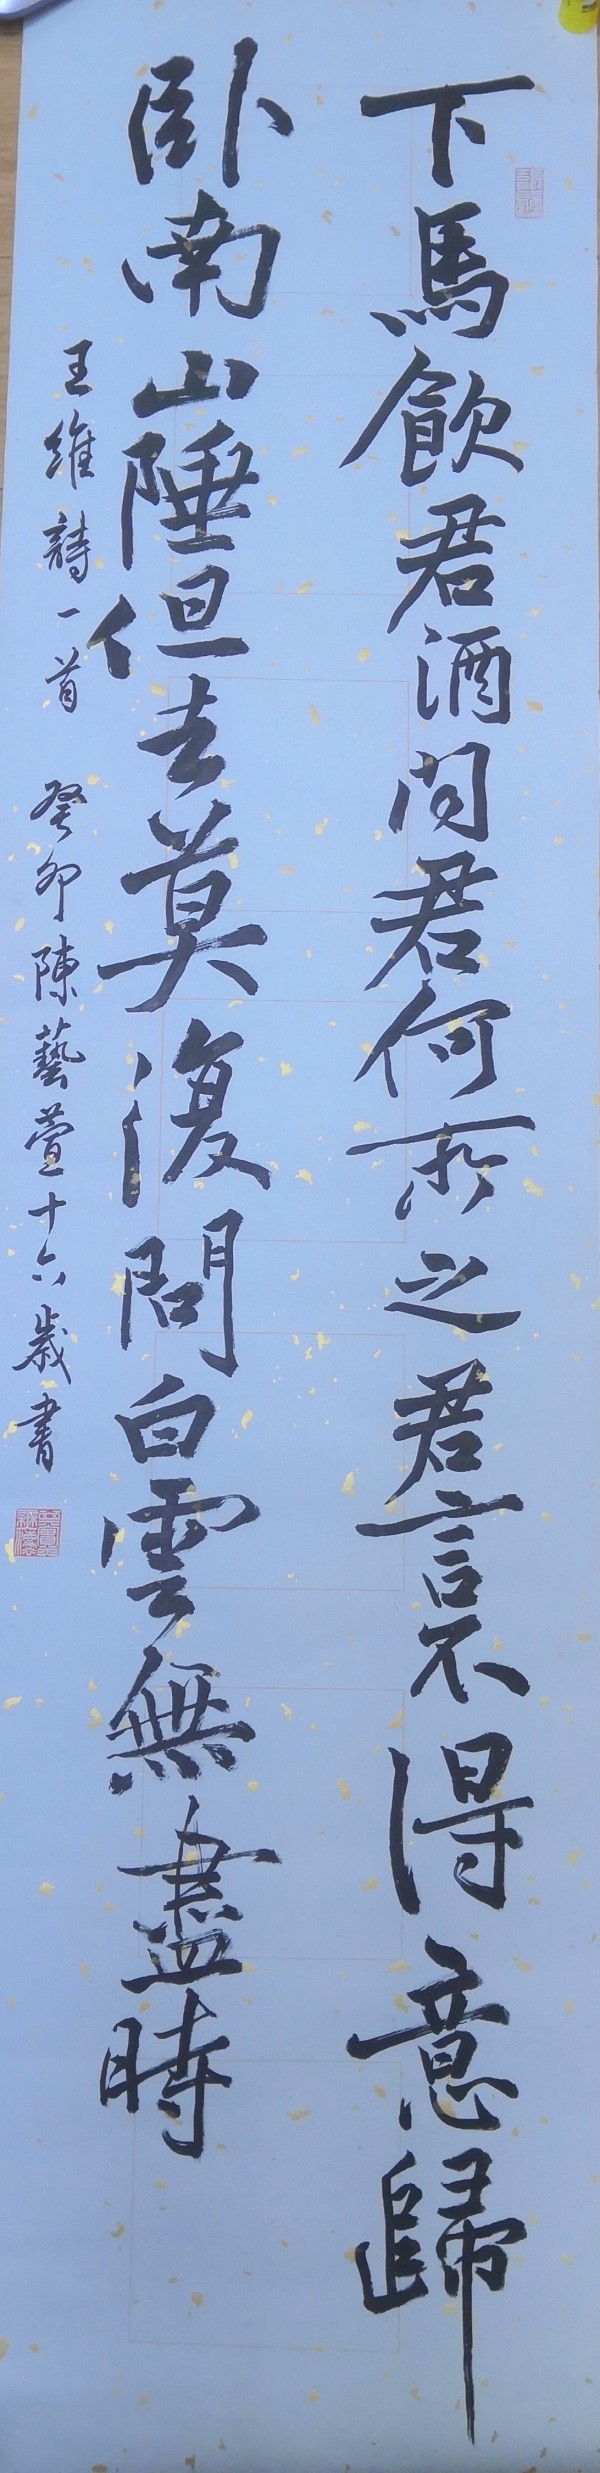 下馬飲君酒問君何所之君言不得意歸
臥南山陲但去莫復問白雲無盡時
王維詩一首 癸卯陳藝萱十六歲書